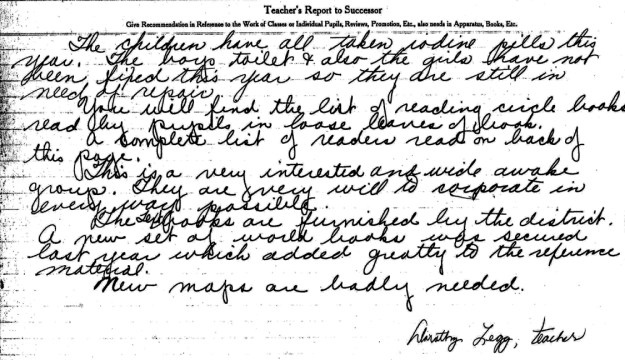 Teacher's Report to Successor
Give Recommendation in Reference to the Work of Classes or Individual Pupils, Reviews, Promotion, Etc., also needs in Apparatus, Books, Etc.
The children have all taken iodine pills this
year. The boys toilet & also the girls have not
been fixed this year so they are still in
need of repair.
You will find the list of reading circle books
read by pupils in loose leaves of book.
A complete list of readers read on back of
this page.
This is a very interested and wide awake
group. They are very will to corporate in
every way possible.
The text books are furnished by the district.
A new set of world books was secured
last year which added greatly to the reference
material.
New maps are badly needed.
Dorothy Legg, teacher